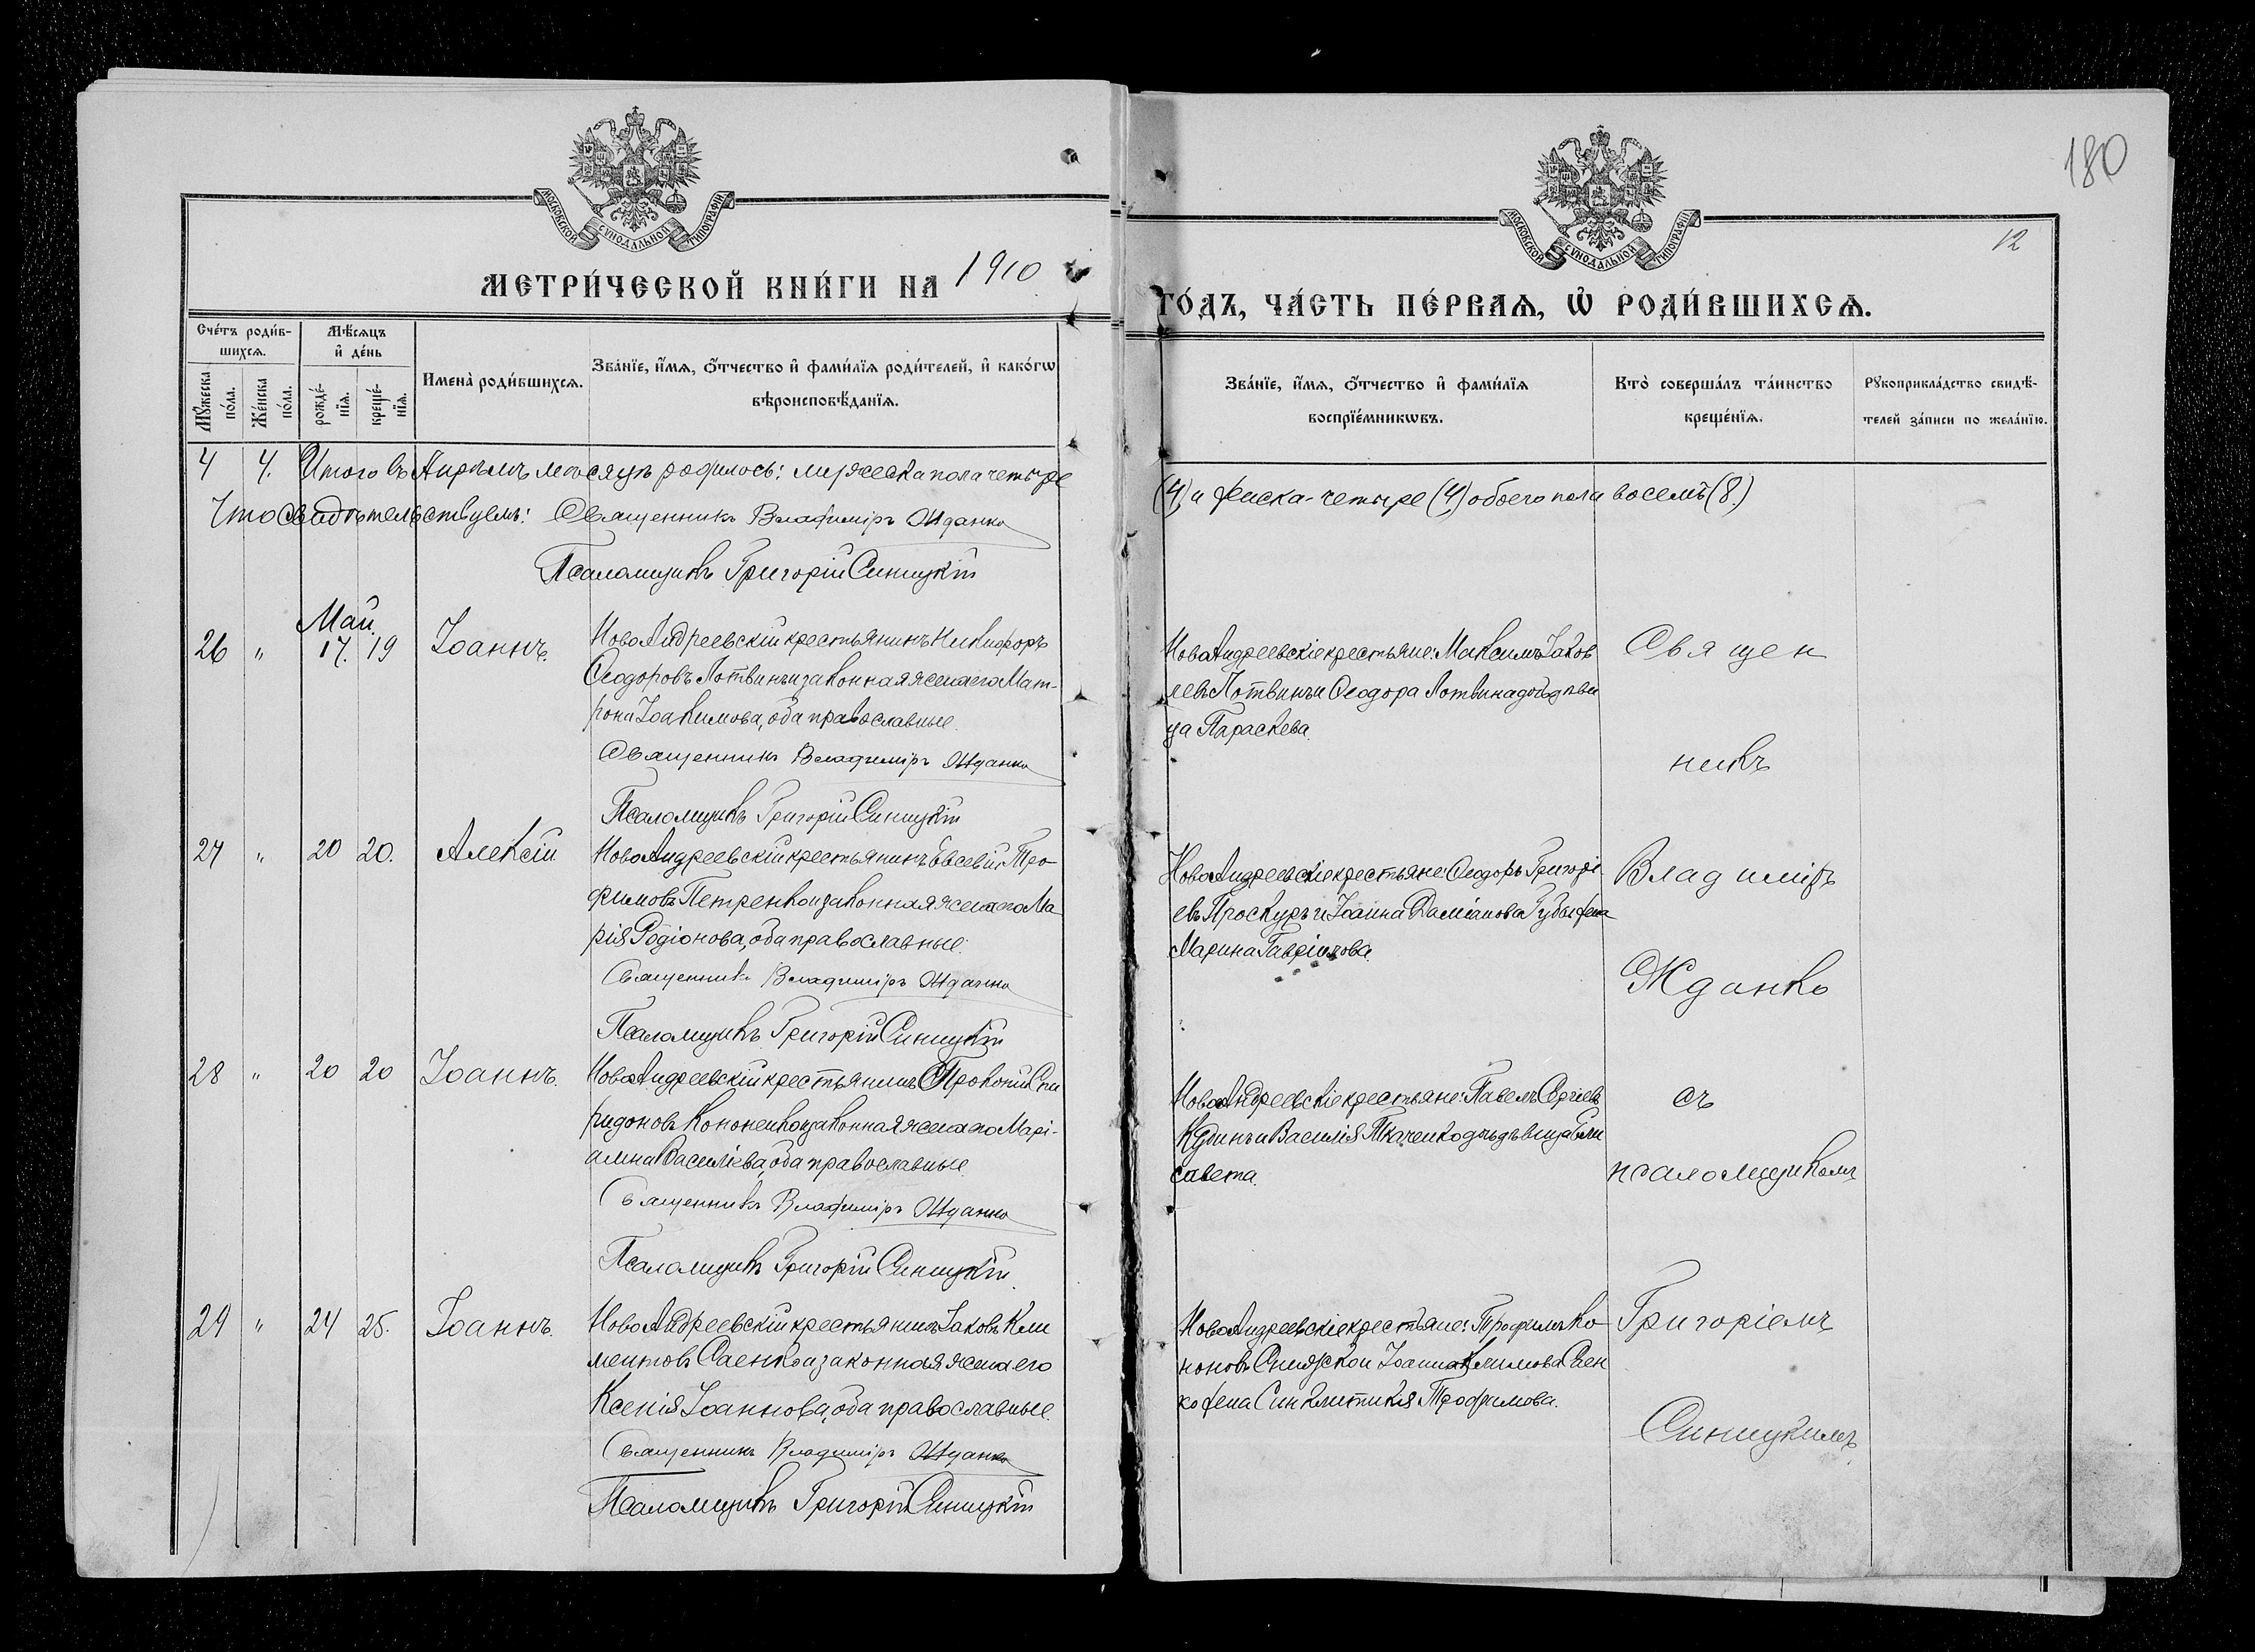 180
12
МОСКОВСКОЙ СѴНОДАЛЬНОЙ ТИПОГРАФІИ
МОСКОВСКОЙ СѴНОДАЛЬНОЙ ТИПОГРАФІИ
МЕТРИ́ЧЕСКОЙ КНИ́ГИ НА 1910
ГО́ДЪ, ЧА́СТЬ ПЕ́РВАѦ, Ѡ҆ РОДИ́ВШИХСѦ.
Сче́тъ роди́в-
шихсѧ.
Мꙋ́жеска
по́ла.
Же́нска
по́ла.
Мѣ́сѧцъ
и҆ де́нь
рожде́-
нїѧ.
креще́-
нїѧ.
Имена̀ роди́вшихсѧ.
Зва́нїе, и҆́мѧ, ѻ҆́тчество и҆ фами́лїѧ роди́телей, и҆ како́гѡ
вѣроисповѣ́данїѧ.
Зва́нїе, и҆́мѧ, ѻ҆́тчество и҆ фами́лїѧ
воспрїе́мникѡвъ.
Кто̀ соверша́лъ та́инство
креще́нїѧ.
Рꙋкоприкла́дство свидѣ́-
телей за́писи по жела́нїю.
4 4. Итого въ Апрѣлѣ мѣсяцѣ родилось: мужеска пола четыре
(4) а женска - четыре (4) обоего пола восемь (8.)
Что свидѣтельствуемъ: Священникъ Владиміръ Жданко
Псаломщикъ Григорій Синицкій
Май.
26 " 17. 19 Іоаннъ.
НовоАндреевскій крестьянинъ Никифоръ
Ѳеодоровъ Логвинъ и законная жена его Мат-
рона Іоакимова, оба православные.
Священникъ Владиміръ Жданко
Псаломщикъ Григорій Синицкій
НовоАндреевскіе крестьяне: Максимъ Іаков
левъ Логвинъ и Ѳеодора Логвина дочь дѣви
ца Параскева.
Священ
никъ
27 " 20 20. Алексій
НовоАндреевскій крестьянинъ Евсевій Тро-
фимовъ Петренко и законная жена его Ма
рія Родіонова, оба православные.
Священникъ Владиміръ Жданко
Псаломщикъ Григорій Синицкій
НовоАндреевскіе крестьяне: Ѳеодоръ Григорі-
евъ Проскура и Іоанна Даміанова Губы жена
Марина Гавріилова.
Владиміръ
Жданко
28 " 20 20 Іоаннъ.
НовоАндреевскій крестьянинъ Прокопій Спи
ридоновъ Кононенко и законная жена его Марі-
амна Василіева, оба православные
Священникъ Владиміръ Жданко
Псаломщикъ Григорій Синицкій
НовоАндреевскіе крестьяне: Павелъ Сергіевъ
и Василія Ткаченко дочь дѣвица Ели
савета.
съ
псаломщикомъ
29 " 24 25. Іоаннъ.
НовоАндреевскій крестьянинъ Іаковъ Кли
ментовъ Саенко и законная жена его
Ксенія Іоаннова, оба православные.
Священникъ Владиміръ Жданко
Псаломщикъ Григорій Синицкій
НовоАндреевскіе крестьяне: Трофимъ Ко-
ноновъ и Іоанна Климова Саен
ко жена Синклитикія Трофимова.
Григоріемъ
Синицкимъ